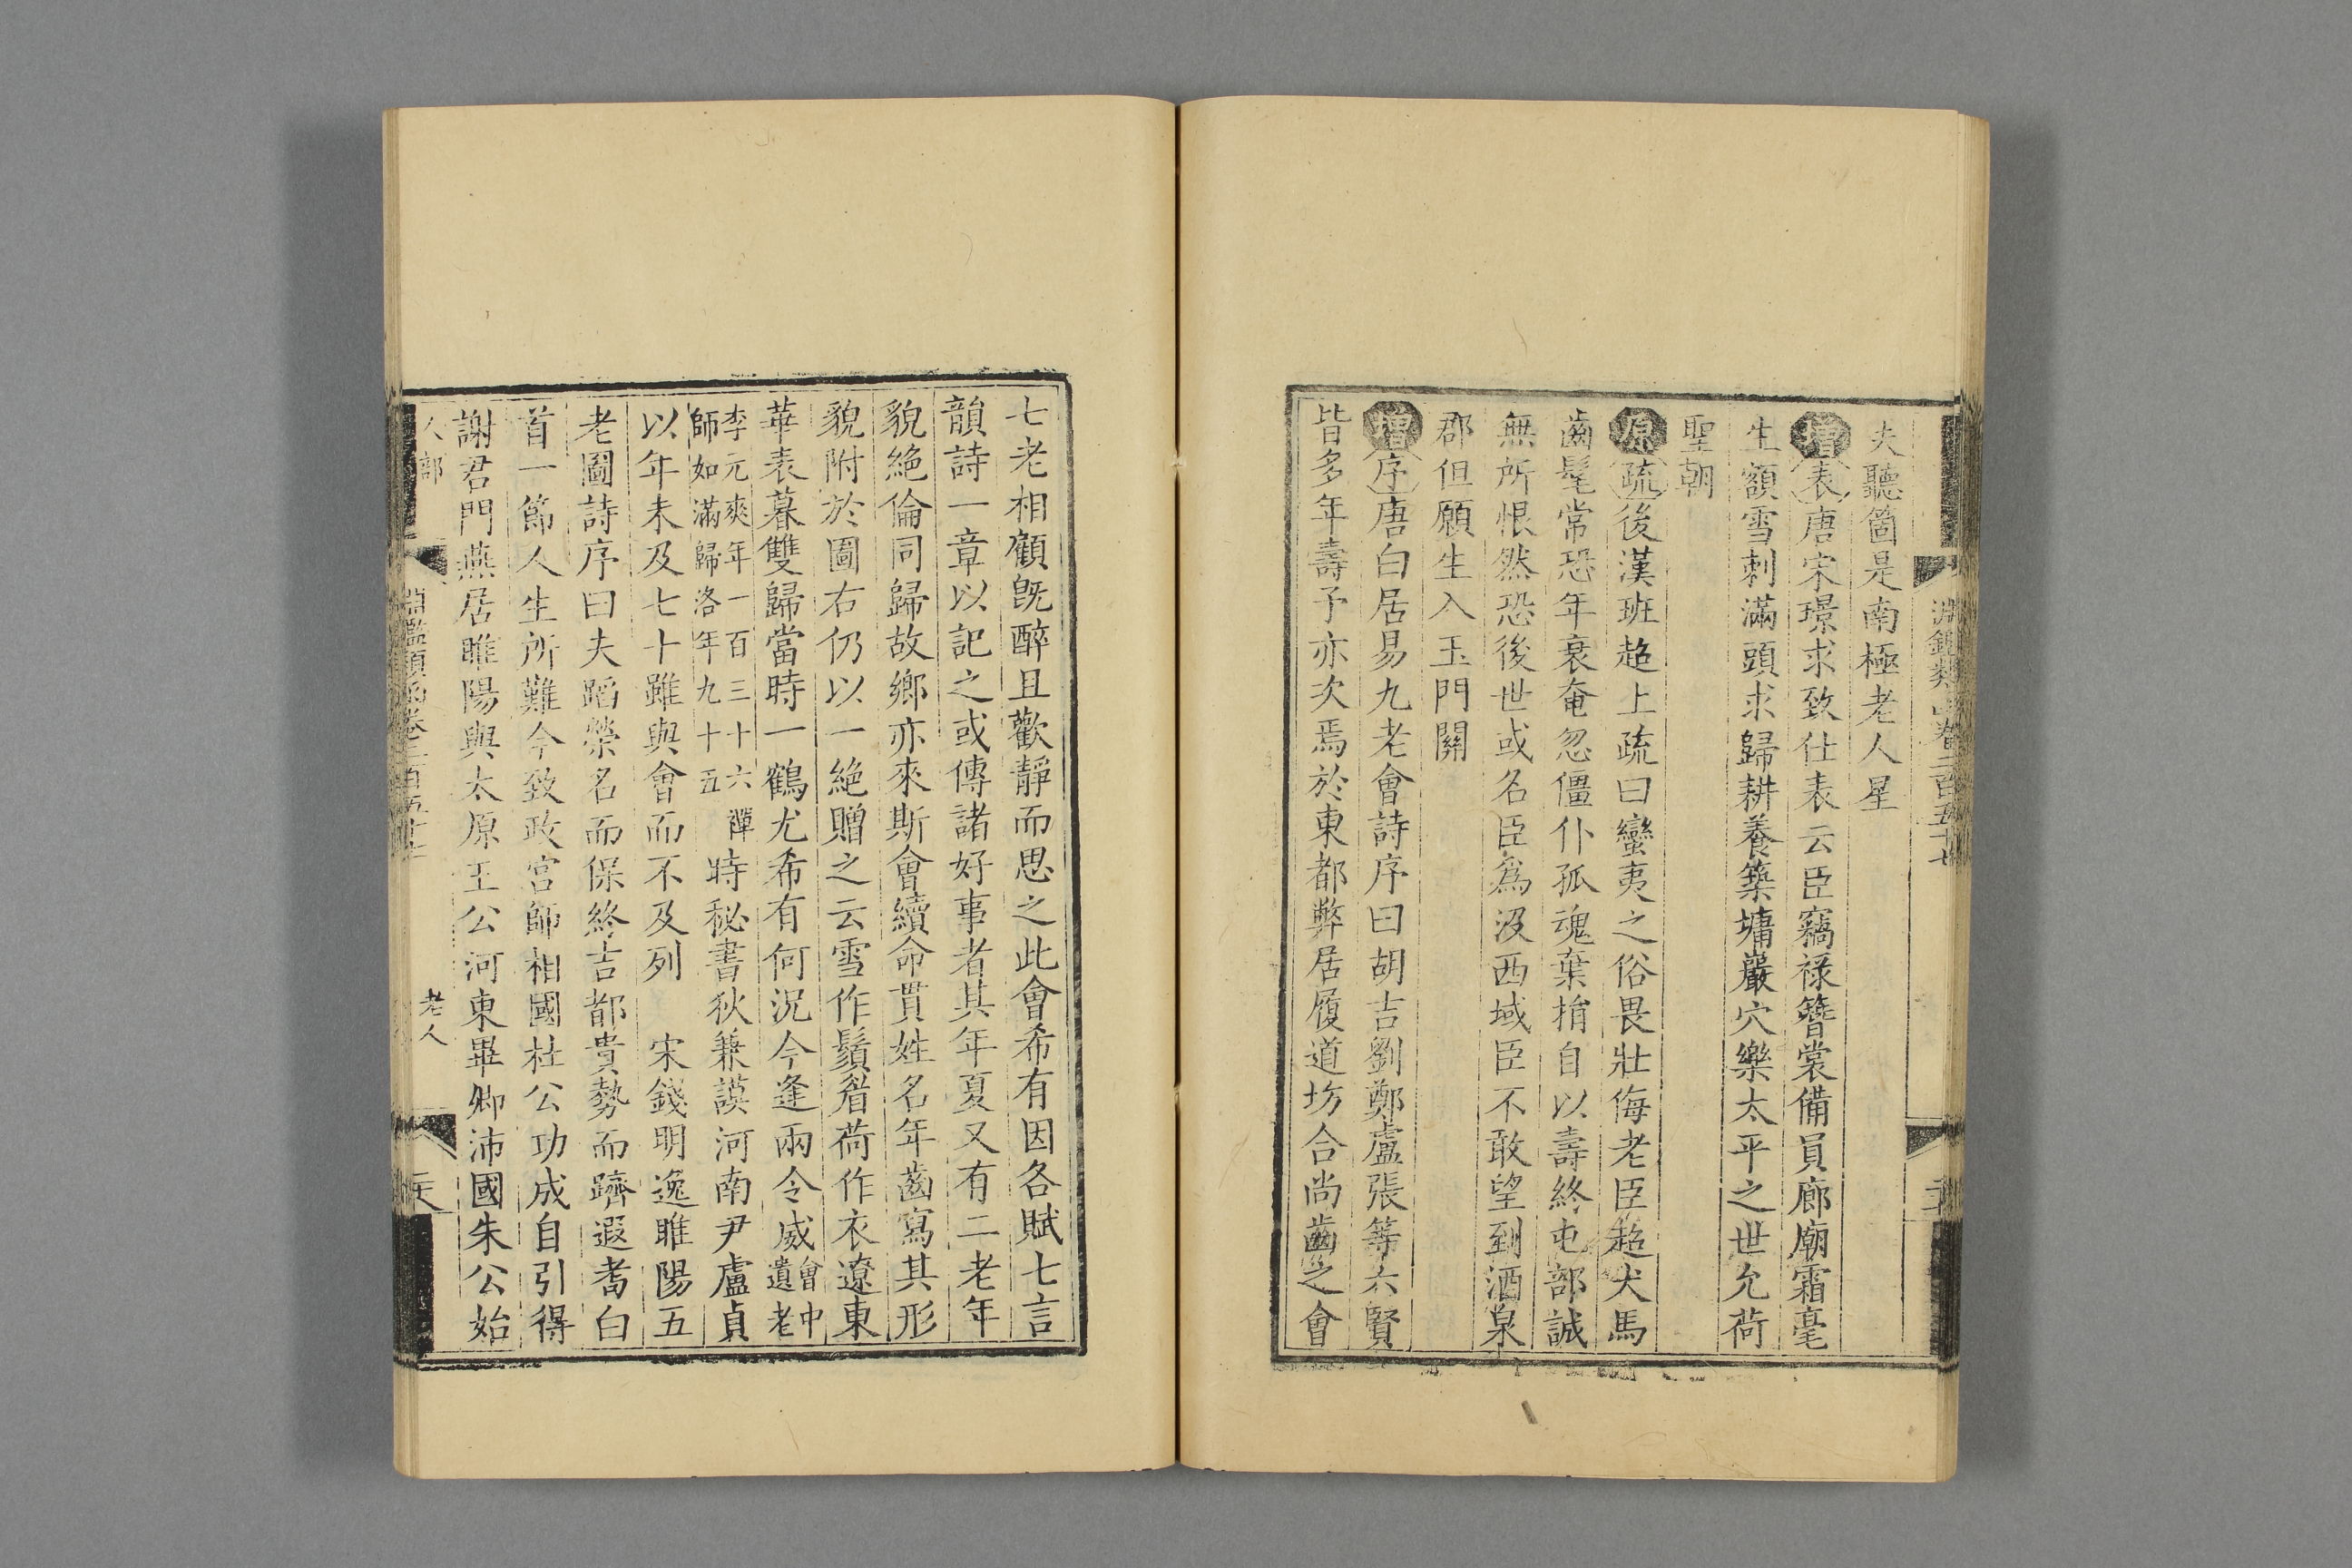 夫聽箇是南極老人星
增表唐宋璟求致仕表云臣竊祿簪裳備員廊廟霜毫
生額雪刺滿頭求歸耕養築墉巖穴樂太平之世允荷
聖朝
原疏後漢班超上疏曰蠻夷之俗畏壯侮老臣超犬馬
齒髦常恐年衰奄忽僵仆孤魂棄捐自以壽終屯部誠
無所恨然恐後世或名臣爲沒西域臣不敢望到酒泉
郡但願生入玉門關
增序唐白居易九老會詩序曰胡吉劉鄭盧張等六賢
皆多年壽予亦次焉於東都弊居履道坊合尚齒之會
七老相顧旣醉且歡靜而思之此會希有因各賦七言
韻詩一章以記之或傳諸好事者其年夏又有二老年
貌絕倫同歸故鄉亦來斯會續命貫姓名年齒寫其形
貌附於圖右仍以一絕贈之云雪作鬚眉荷作衣遼東
華表暮雙歸當時一鶴尤希有何況今逢兩令威會中
遺老
李元爽年一百三十六禪
師如滿歸洛年九十五
時秘書狄兼謨河南尹盧貞
以年未及七十雖與會而不及列　宋錢明逸睢陽五
老圖詩序曰夫蹈榮名而保終吉都貴勢而躋遐耇白
首一節人生所難今致政宮師相國杜公功成自引得
謝君門燕居睢陽與太原王公河東畢卿沛國朱公始
人部
淵鑑類函卷二百五十七
老人